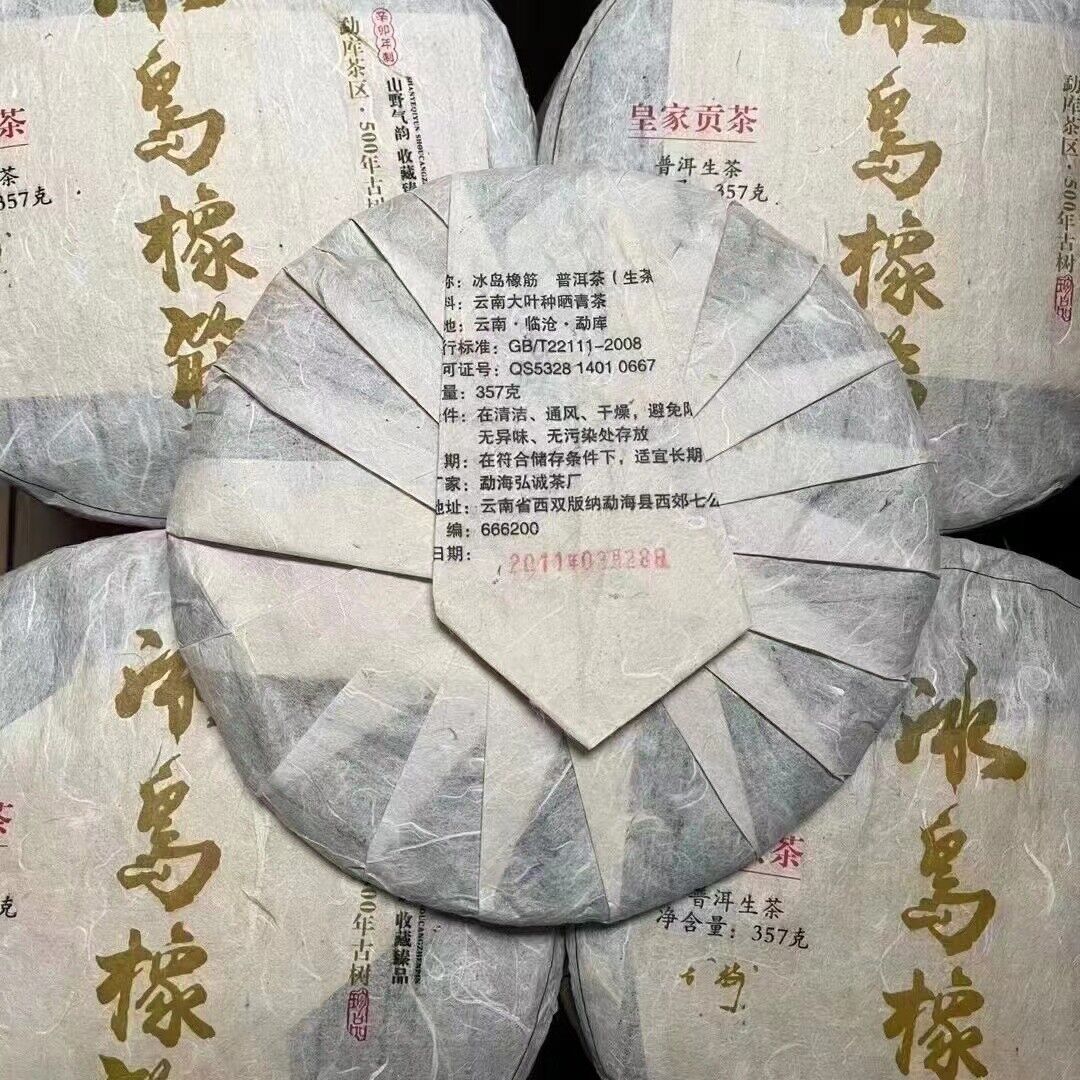 辛卯年制
勐库茶区·500年古树
山野气韵 收藏臻
SHANYEQIYUN SHOUCANGZ
岛橡筋
茶
茶
357克
冰岛橡
皇家贡茶
普洱生茶
357克
勐库茶区·500年古树
珍品
称：冰岛橡筋 普洱茶（生茶
料：云南大叶种晒青茶
地：云南·临沧·勐库
行标准：GB/T22111-2008
可证号：QS5328 1401 0667
量：357克
件：在清洁、通风、干燥，避免阳
无异味、无污染处存放
期：在符合储存条件下，适宜长期
厂家：勐海弘诚茶厂
地址：云南省西双版纳勐海县西郊七公
编：666200
日期：
2011年03月28日
冰岛橡
茶
克
500年古树
珍品
收藏臻品
冰岛橡
茶
普洱生茶
净含量：357克
古树